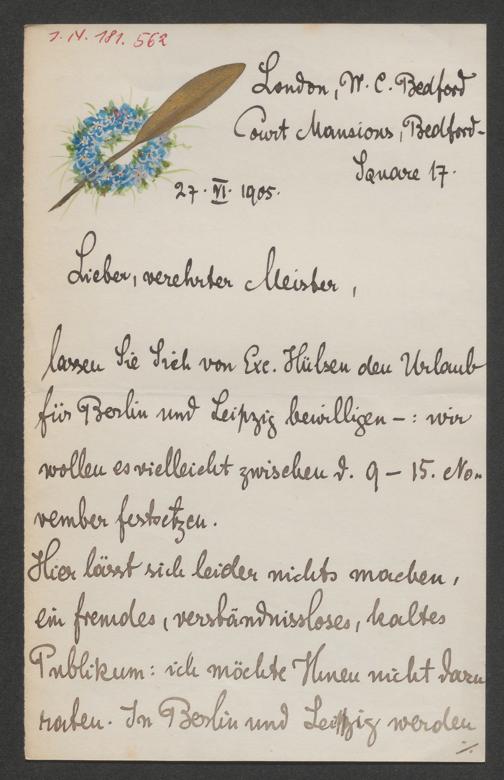 I. N. 181. 562
London, W. C. Bedford
Court Mansions, Bedford-
Square 17.
27. VI. 1905.
Lieber, verehrter Meister,
lassen Sie Sich von Exc. Hülsen den Urlaub
für Berlin und Leipzig bewilligen –: wir
wollen es vielleicht zwischen d. 9 – 15. No-
vember festsetzen.
Hier lässt sich leider nichts machen,
ein fremdes, verständnissloses, kaltes
Publikum: ich möchte Ihnen nicht dazu
raten. In Berlin und Leipzig werden
./.